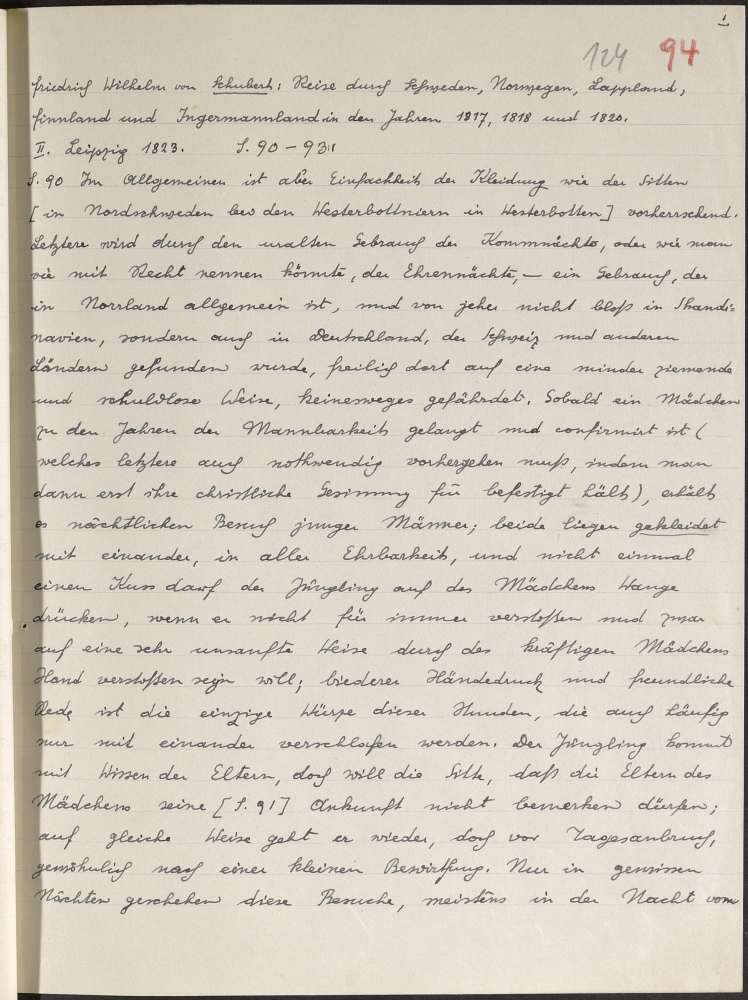 1
124 94
Friedrich Wilhelm von Schubert: Reise durch Schweden, Norwegen, Lappland,
Finnland und Ingermannland in den Jahren 1817, 1818 und 1820.
II. Leipzig 1823. S. 90 – 93
S. 90 Im Allgemeinen ist aber Einfachheit der Kleidung wie der Sitten
[in Nordschweden bei den Westerbottniern in Westerbotten] vorherrschend.
Letztere wird durch den uralten Gebrauch der Kommnächte, oder wie man
sie mit Recht nennen könnte, der Ehrennächte, – ein Gebrauch, der
in Norrland allgemein ist, und von jeher nicht bloß in Skandi=
navien, sondern auch in Deutschland, der Schweiz und anderen
Ländern gefunden wurde, freilich dort auf eine minder ziemende
und schuldlose Weise, keinesweges gefährdet. Sobald ein Mädchen
zu den Jahren der Mannbarkeit gelangt und confirmirt ist (
welches letztere auch nothwendig vorhergehen muß, indem man
dann erst ihre christliche Gesinnung für befestigt hält), erhält
es nächtlichen Besuch junger Männer; beide liegen gekleidet
mit einander, in aller Ehrbarkeit, und nicht einmal
einen Kuss darf der Jüngling auf des Mädchens Wange
drücken, wenn er nicht für immer verstoßen und zwar
auf eine sehr unsanfte Weise durch des kräftigen Mädchens
Hand verstoßen seyn will; biederer Händedruck und freundliche
Rede ist die einzige Würze dieser Stunden, die auch häufig
nur mit einander verschlafen werden. Der Jüngling kommt
mit Wissen der Eltern, doch will die Sitte, daß die Eltern des
Mädchens seine [S. 91] Ankunft nicht bemerken dürfen;
auf gleiche Weise geht er wieder, doch vor Tagesanbruch,
gewöhnlich nach einer kleinen Bewirthung. Nur in gewissen
Nächten geschehen diese Besuche, meistens in der Nacht vom